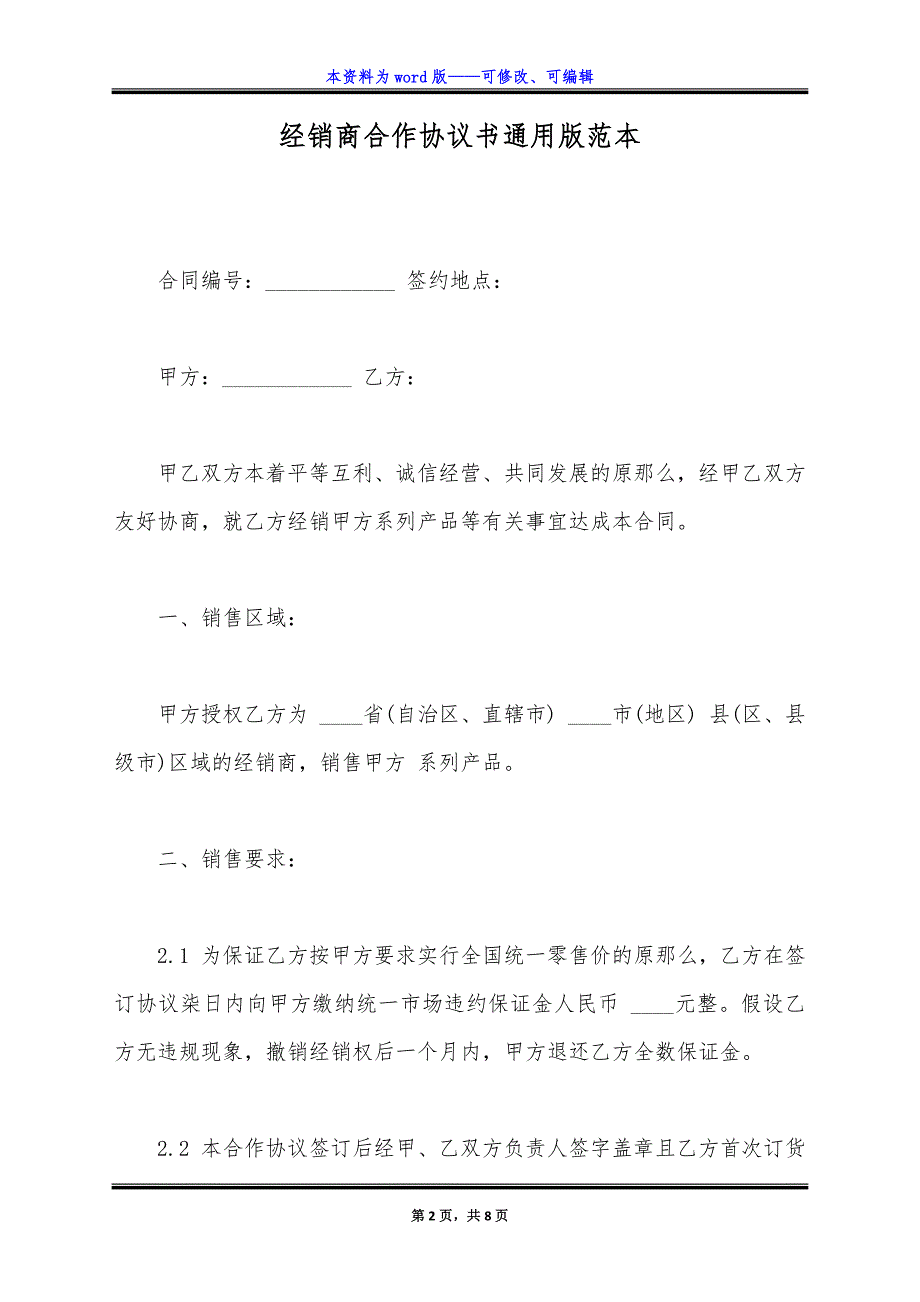 本资料为 word 版——可修改、可编辑
经销商合作协议书通用版范本
合同编号：____________ 签约地点：
甲方：____________ 乙方：
甲乙双方本着平等互利、诚信经营、共同发展的原那么，经甲乙双方
友好协商，就乙方经销甲方系列产品等有关事宜达成本合同。
一、销售区域：
甲方授权乙方为 ____省(自治区、直辖市) ____市(地区) 县(区、县
级市)区域的经销商，销售甲方 系列产品。
二、销售要求：
2.1 为保证乙方按甲方要求实行全国统一零售价的原那么，乙方在签
订协议柒日内向甲方缴纳统一市场违约保证金人民币 ____元整。假设乙
方无违规现象，撤销经销权后一个月内，甲方退还乙方全数保证金。
2.2 本合作协议签订后经甲、乙双方负责人签字盖章且乙方首次订货
第 2 页，共 8 页